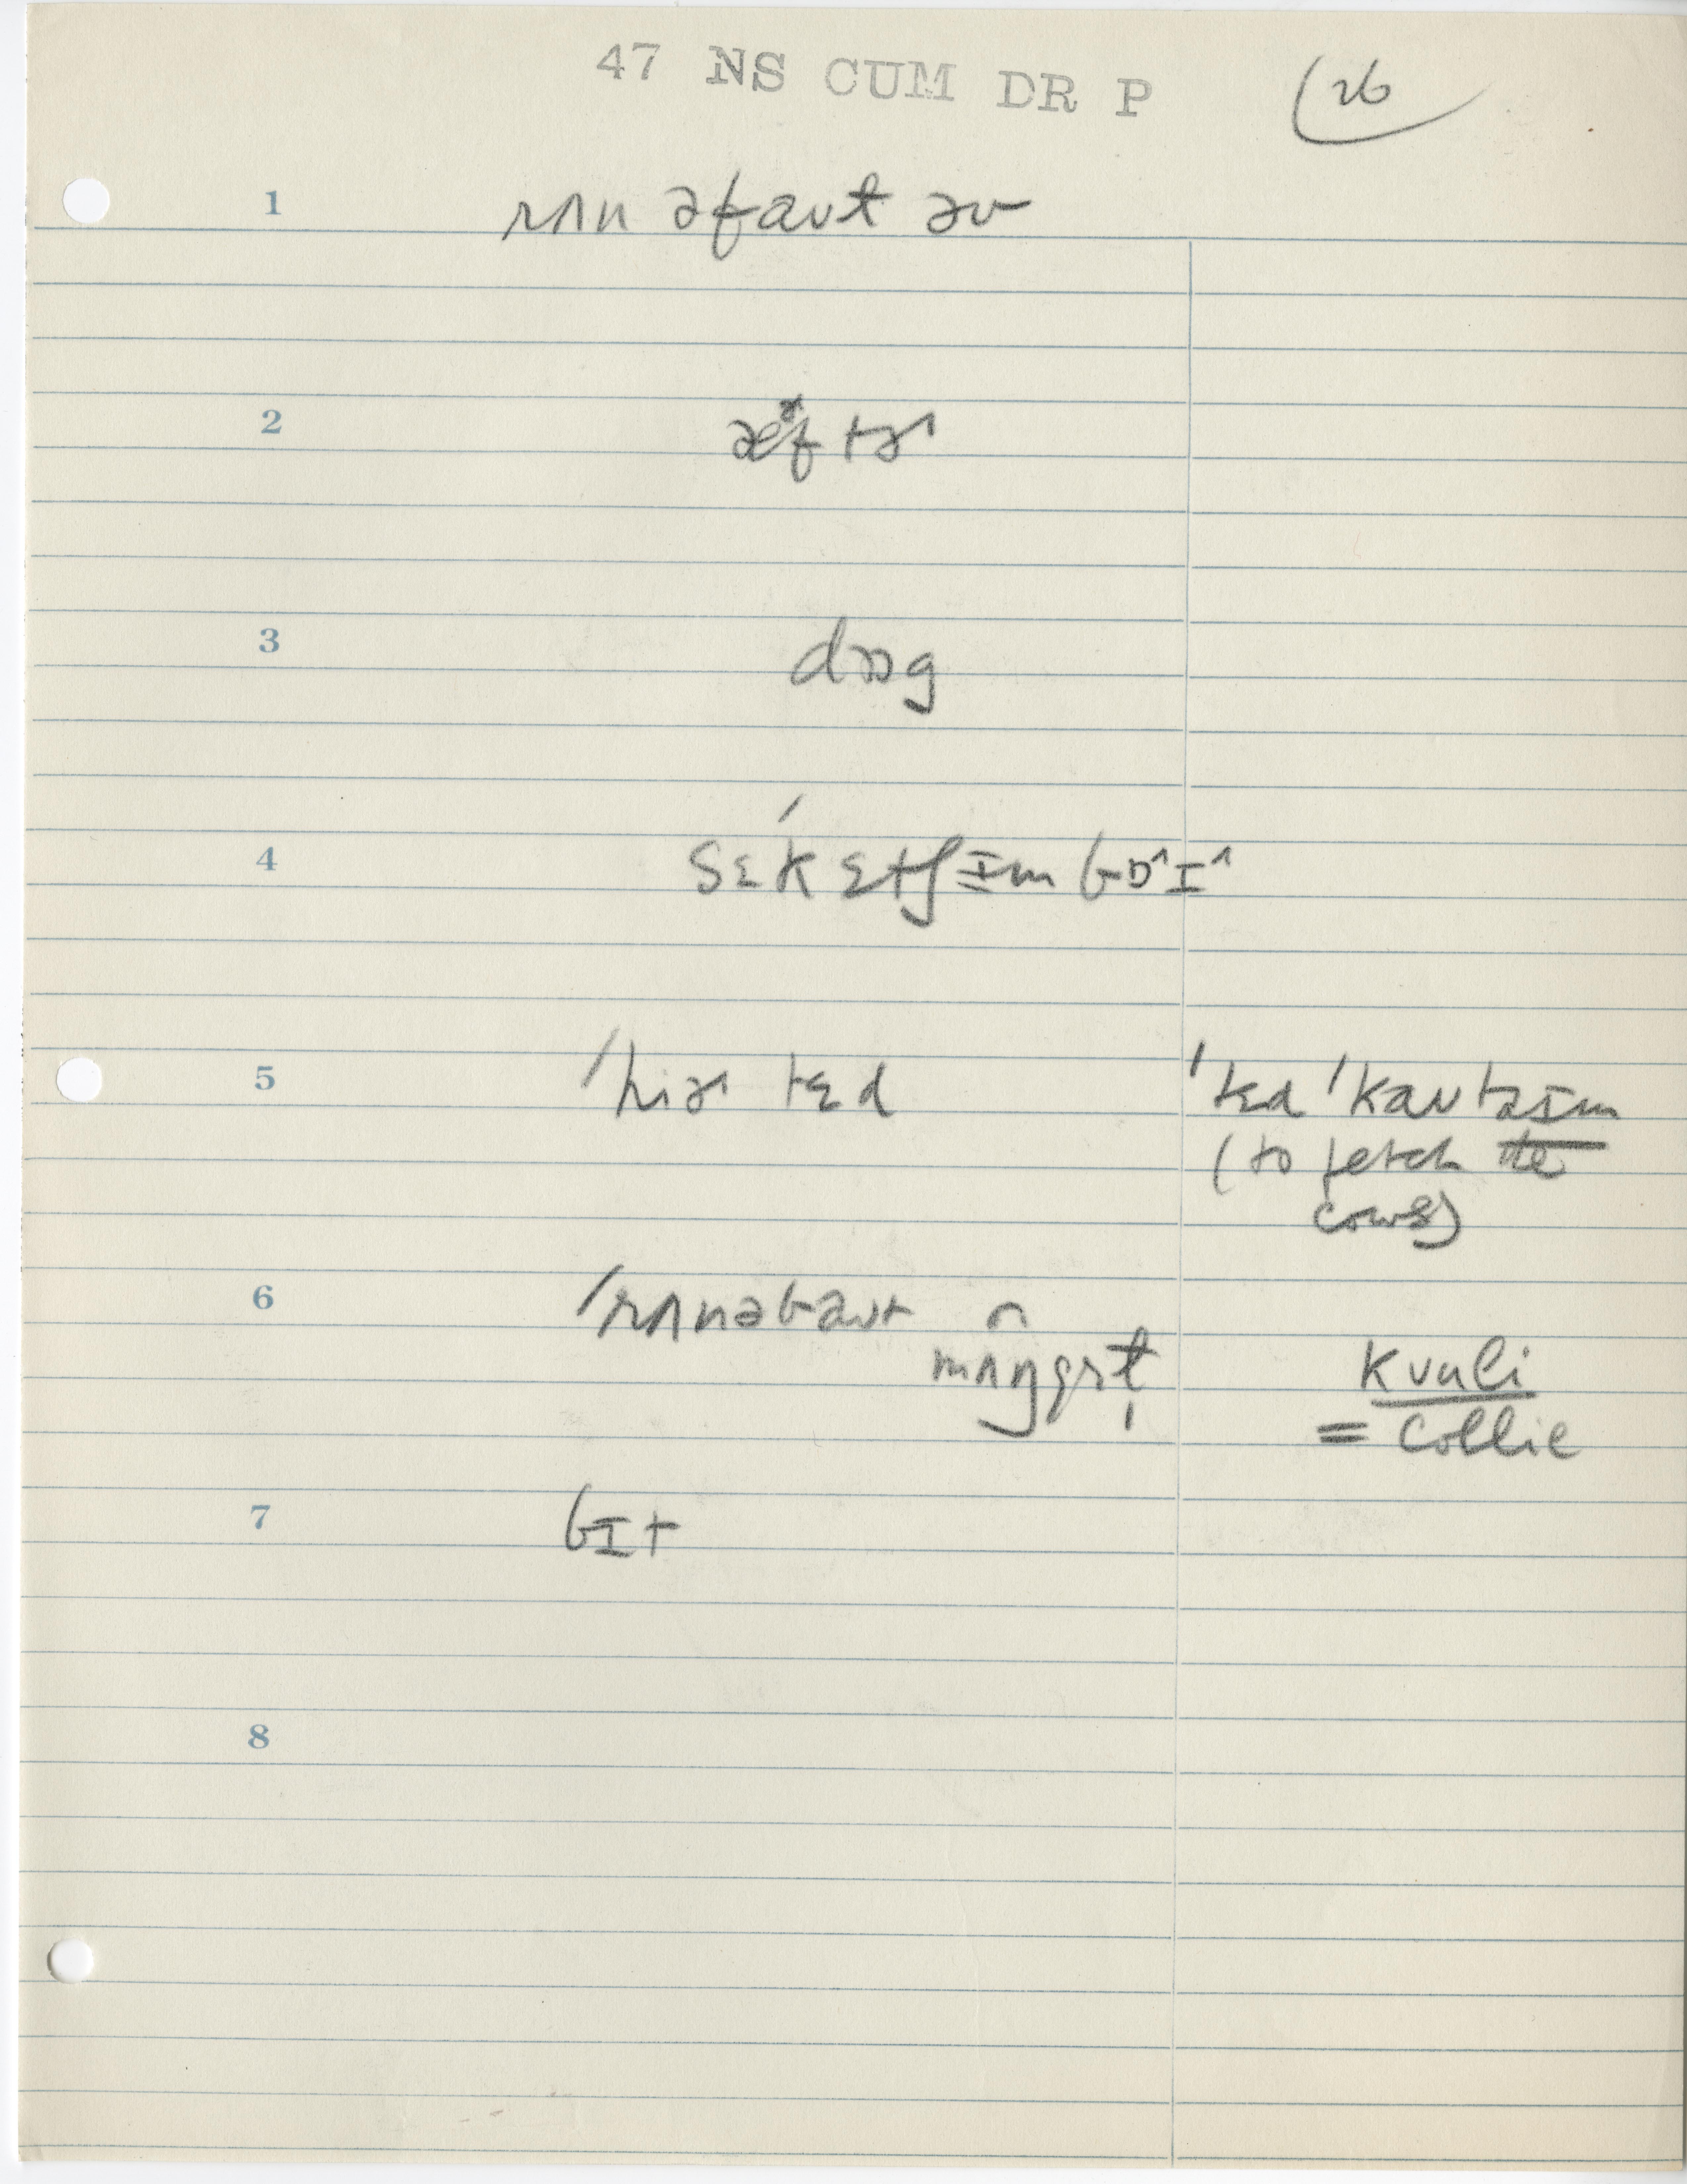 47 NS CUM DR P (26
1 rʌn əfaʊt əv
2 æᵊf tɚ^
3 dɒɒg
4 sɛ́k ɛtʃ ɪm bɒ^ɪ^
5 ˈhiɚ tɛd ˈtɛd ˈkaʊ təɪm
(to fetch the
cows)
6 ˈrʌnəbaʊt ə
mʌŋgrɪt kvɑli
= collie
7 bɪt
8